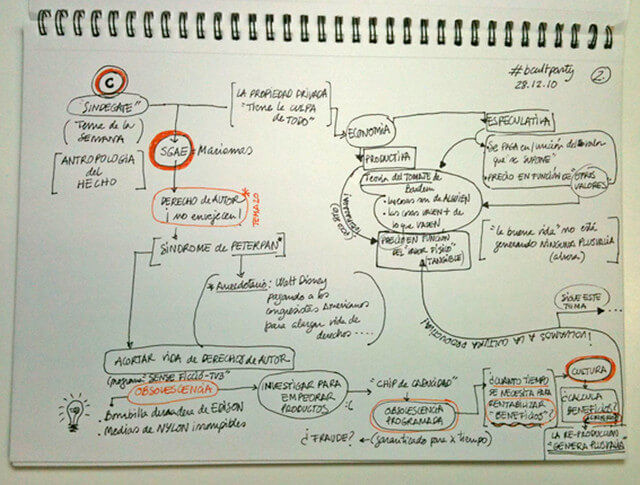 #bcultparty
28.12.10
2.
C
"SINDEGATE"
(Tema de la
SEMANA)
[ANTROPOLOGÍA
del
HECHO]
SGAE = Mariomas
DERECHO de AUTOR
¡no envejecen!
* TEMAZO
[SÍNDROME de PETERPAN*
* Anecdotario: Walt Disney
pagando a los
congresistas Americanos
para alargar vida de
derechos ....
LA PROPIEDAD PRIVADA
"Tiene la CULPA
de TODO"
ECONOMÍA
PRODUCTIVA
Teoría del TOMATE de
• las cosas son de ALGUIEN
• las cosas VALEN + de
lo que VALEN
PRECIO EN FUNCIÓN
DEL "VALOR FÍSICO"
(TANGIBLE)
ESPECULATIVA
• Se PAGA en función del valor
que se SUPONE
• PRECIO EN FUNCIÓN de "OTROS
VALORES"
"la buena vida" no está
generando NINGUNA PLUSVALÍA
(ahora)
SIGUE ESTE
TEMA
¡VOLVAMOS A LA CULTURA PRODUCTIVA!
ACORTAR VIDA DE DERECHOS DE AUTOR
(programa "SENSE FICCIÓ-TV3")
OBSOLESCENCIA
• Bombilla duradera de EDISON
• Medias de NYLON irrompibles
INVESTIGAR PARA
EMPEORAR
PRODUCTOS
:(
"CHIP de CADUCIDAD"
OBSOLESCENCIA
PROGRAMADA
(garantizado para x tiempo)
¿FRAUDE?
¿CUANTO TIEMPO
SE NECESITA PARA
RENTABILIZAR
"BENEFICIOS"?
CULTURA
¿CALCULA
BENEFICIOS?
LA RE-PRODUCCIÓN
"GENERA PLUSVALÍA"